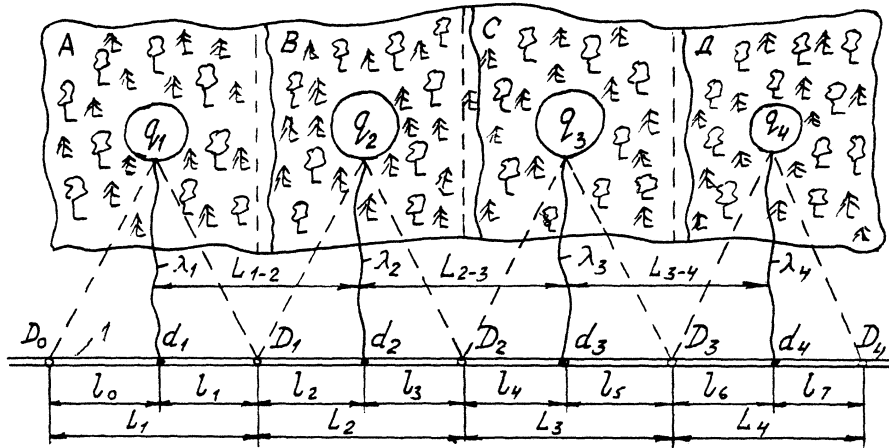 A B C Д
q1 q2 q3 q4
λ1 L1-2 λ2 L2-3 λ3 L3-4 λ4
D0 1 d1 D1 d2 D2 d3 D3 d4 D4
l0 l1 l2 l3 l4 l5 l6 l7
L1 L2 L3 L4